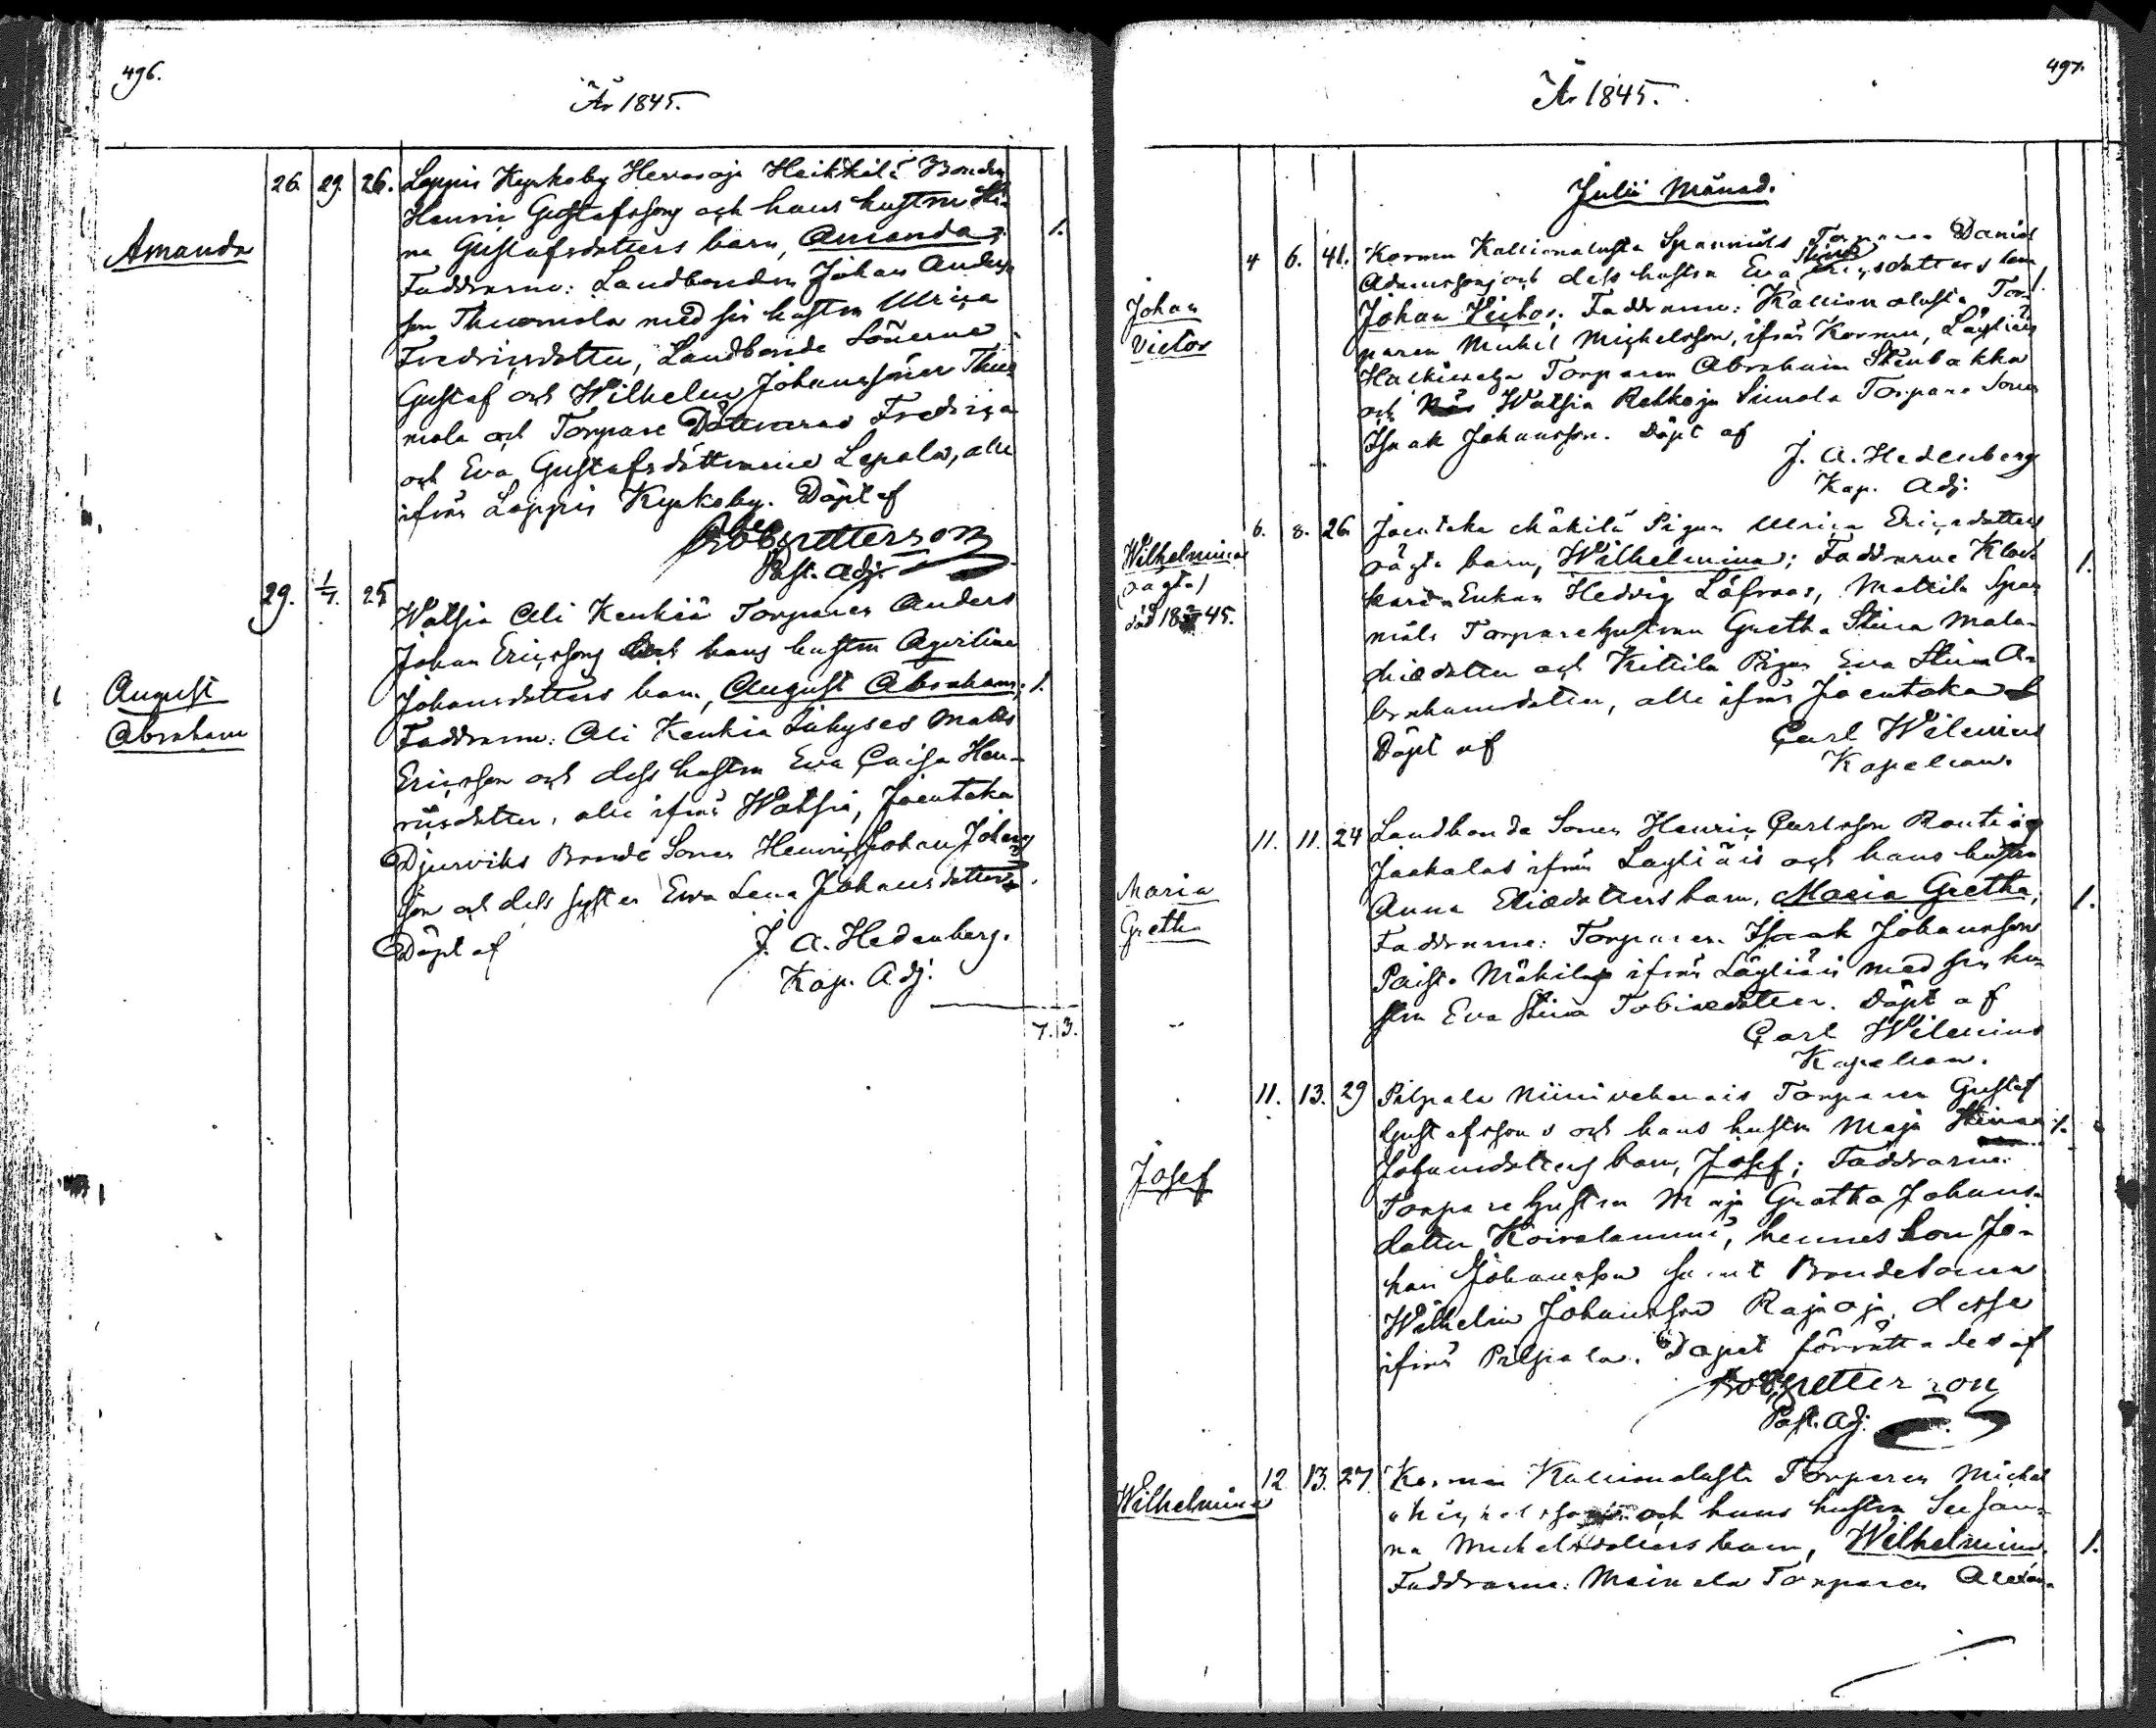 496.
År 1845.
Amanda
26. 29. 26. Loppis Kyrkoby Hevosoja Heikkilä Bonden
Henric Gustafsson och hans hustru Sti-
na Gustafsdotters barn, Amanda; 1.
Faddrarne: Landbonden Johan Anders-
son Thuomola med sin hustru Ulrica
Fredricsdotter, Landbonde Sönerne
Gustaf och Wilhelm Johanssöner Thuo-
mola och Torpare Döttrarne Fredrica
och Eva Gustafsdöttrarne Lepola, alla
ifrån Loppis Kyrkoby. Döpt af
Past. Adj.
August
Abraham
29. 1/7. 25 Watsia Ali Kenkiä Torparen Anders
Johan Ericssons och hans hustru Agvilina
Johansdotters barn, August Abraham; 1.
Faddrarne: Ali Kenkiä Inhyses Matts
Ericsson och dess hustru Eva Caisa Hen-
ricsdotter, alle ifrån Watsia, Joentaka
Djurviks Bonde Sonen Henric Johan Johans-
son och dess syster Eva Lena Johansdotter.
Döpt af J. A. Hedenberg.
Kap. Adj.
7. 3.
497.
År 1845.
Julii Månad.
Johan
Victor
4 6. 41. Kormu Kallionalusta Spannmåls Torparen Daniel
Adamssons och dess hustru Eva Stina Ericsdotters barn 1.
Johan Victor; Faddrarne: Kallionalusta Tor-
paren Michel Michelsson, ifrån Kormu, Läyliäis
Torparen Abraham Stenbakka
och Watsia Rekkoja Simola Torpare Sonen
Isaak Johansson. Döpt af
J. A. Hedenberg
Kap. Adj.
Wilhelmina
(oägta)
död 18 45.
6. 8. 26 Joentaka Mäkilä Pigan Ulrica Ericsdotters
oägta barn, Wilhelmina; Faddrarne Klock- 1.
kare Enkan Hedvig Löfroos, Mattila Span-
måls Torpare hustrun Gretha Stina Mala-
chiædotter och Kittilä Pigan Eva Stina A-
brahamsdotter, alle ifrån Joentaka
Döpt af Carl Wilenius
Kapellan.
Maria
Gretha
11. 11. 24 Landbonde Sonen Henric Carlsson Rautia
Jaakolas ifrån Läyliäis och hans hustru
Anna Eliædotters barn, Maria Gretha; 1.
Faddrarne: Torparen Isaak Johansson
Paista Mäkilä ifrån Läyliäis med sin hu-
stru Eva Stina Tobiædotter. Döpt af
Carl Wilenius
Kapellan.
Josef
11. 13. 29 Pilpala Niinivehmais Torparen Gustaf
Gustafssons och hans hustru Maja Stina 1.
Johansdotters barn, Josef; Faddrarne:
Torpare hustrun Maja Gretha Johans-
dotter Koivolammi, hennes Son Jo-
han Johansson samt Bondesonen
Wilhelm Johansson Rajaoja, desse
ifrån Pilpala. Dopet förrättades af
Past. Adj.
Wilhelmina
12 13. 27 Kormu Kallionalusta Torparen Michel
Michelssons och hans hustru Susan-
na Michelsdotters barn, Wilhelmina. 1.
Faddrarne: Mainela Torparen Alexan-